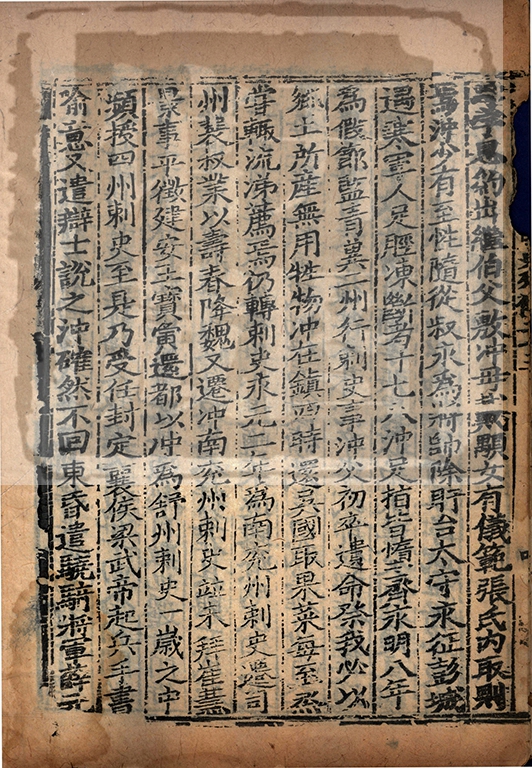 字思約出繼伯父敷沖母戴顒女有儀範張氏内取則
焉沖少有至性隨從叔永爲將帥除盱台太守永征彭城
遇寒軍人足脛凍斷者十七八沖足指皆墮齊永明八年
爲假節監青冀二州行刺史事沖父初卒遺命祭我必以
鄉土所産無用牲物沖在鎮四時還吳國取果菜每至烝
嘗輒流涕薦焉仍轉刺史永元二年爲南兖州刺史遷司
州裴叔業以壽春降魏又遷沖南兖州刺史並未拜崔慧
景事平徵建安王寶夤還都以沖爲舒州刺史一歲之中
頻授四州刺史至是乃受任封定襄侯梁武帝起兵手書
喻意又遣辯士説之沖確然不回東昏遣驍騎將軍薛元